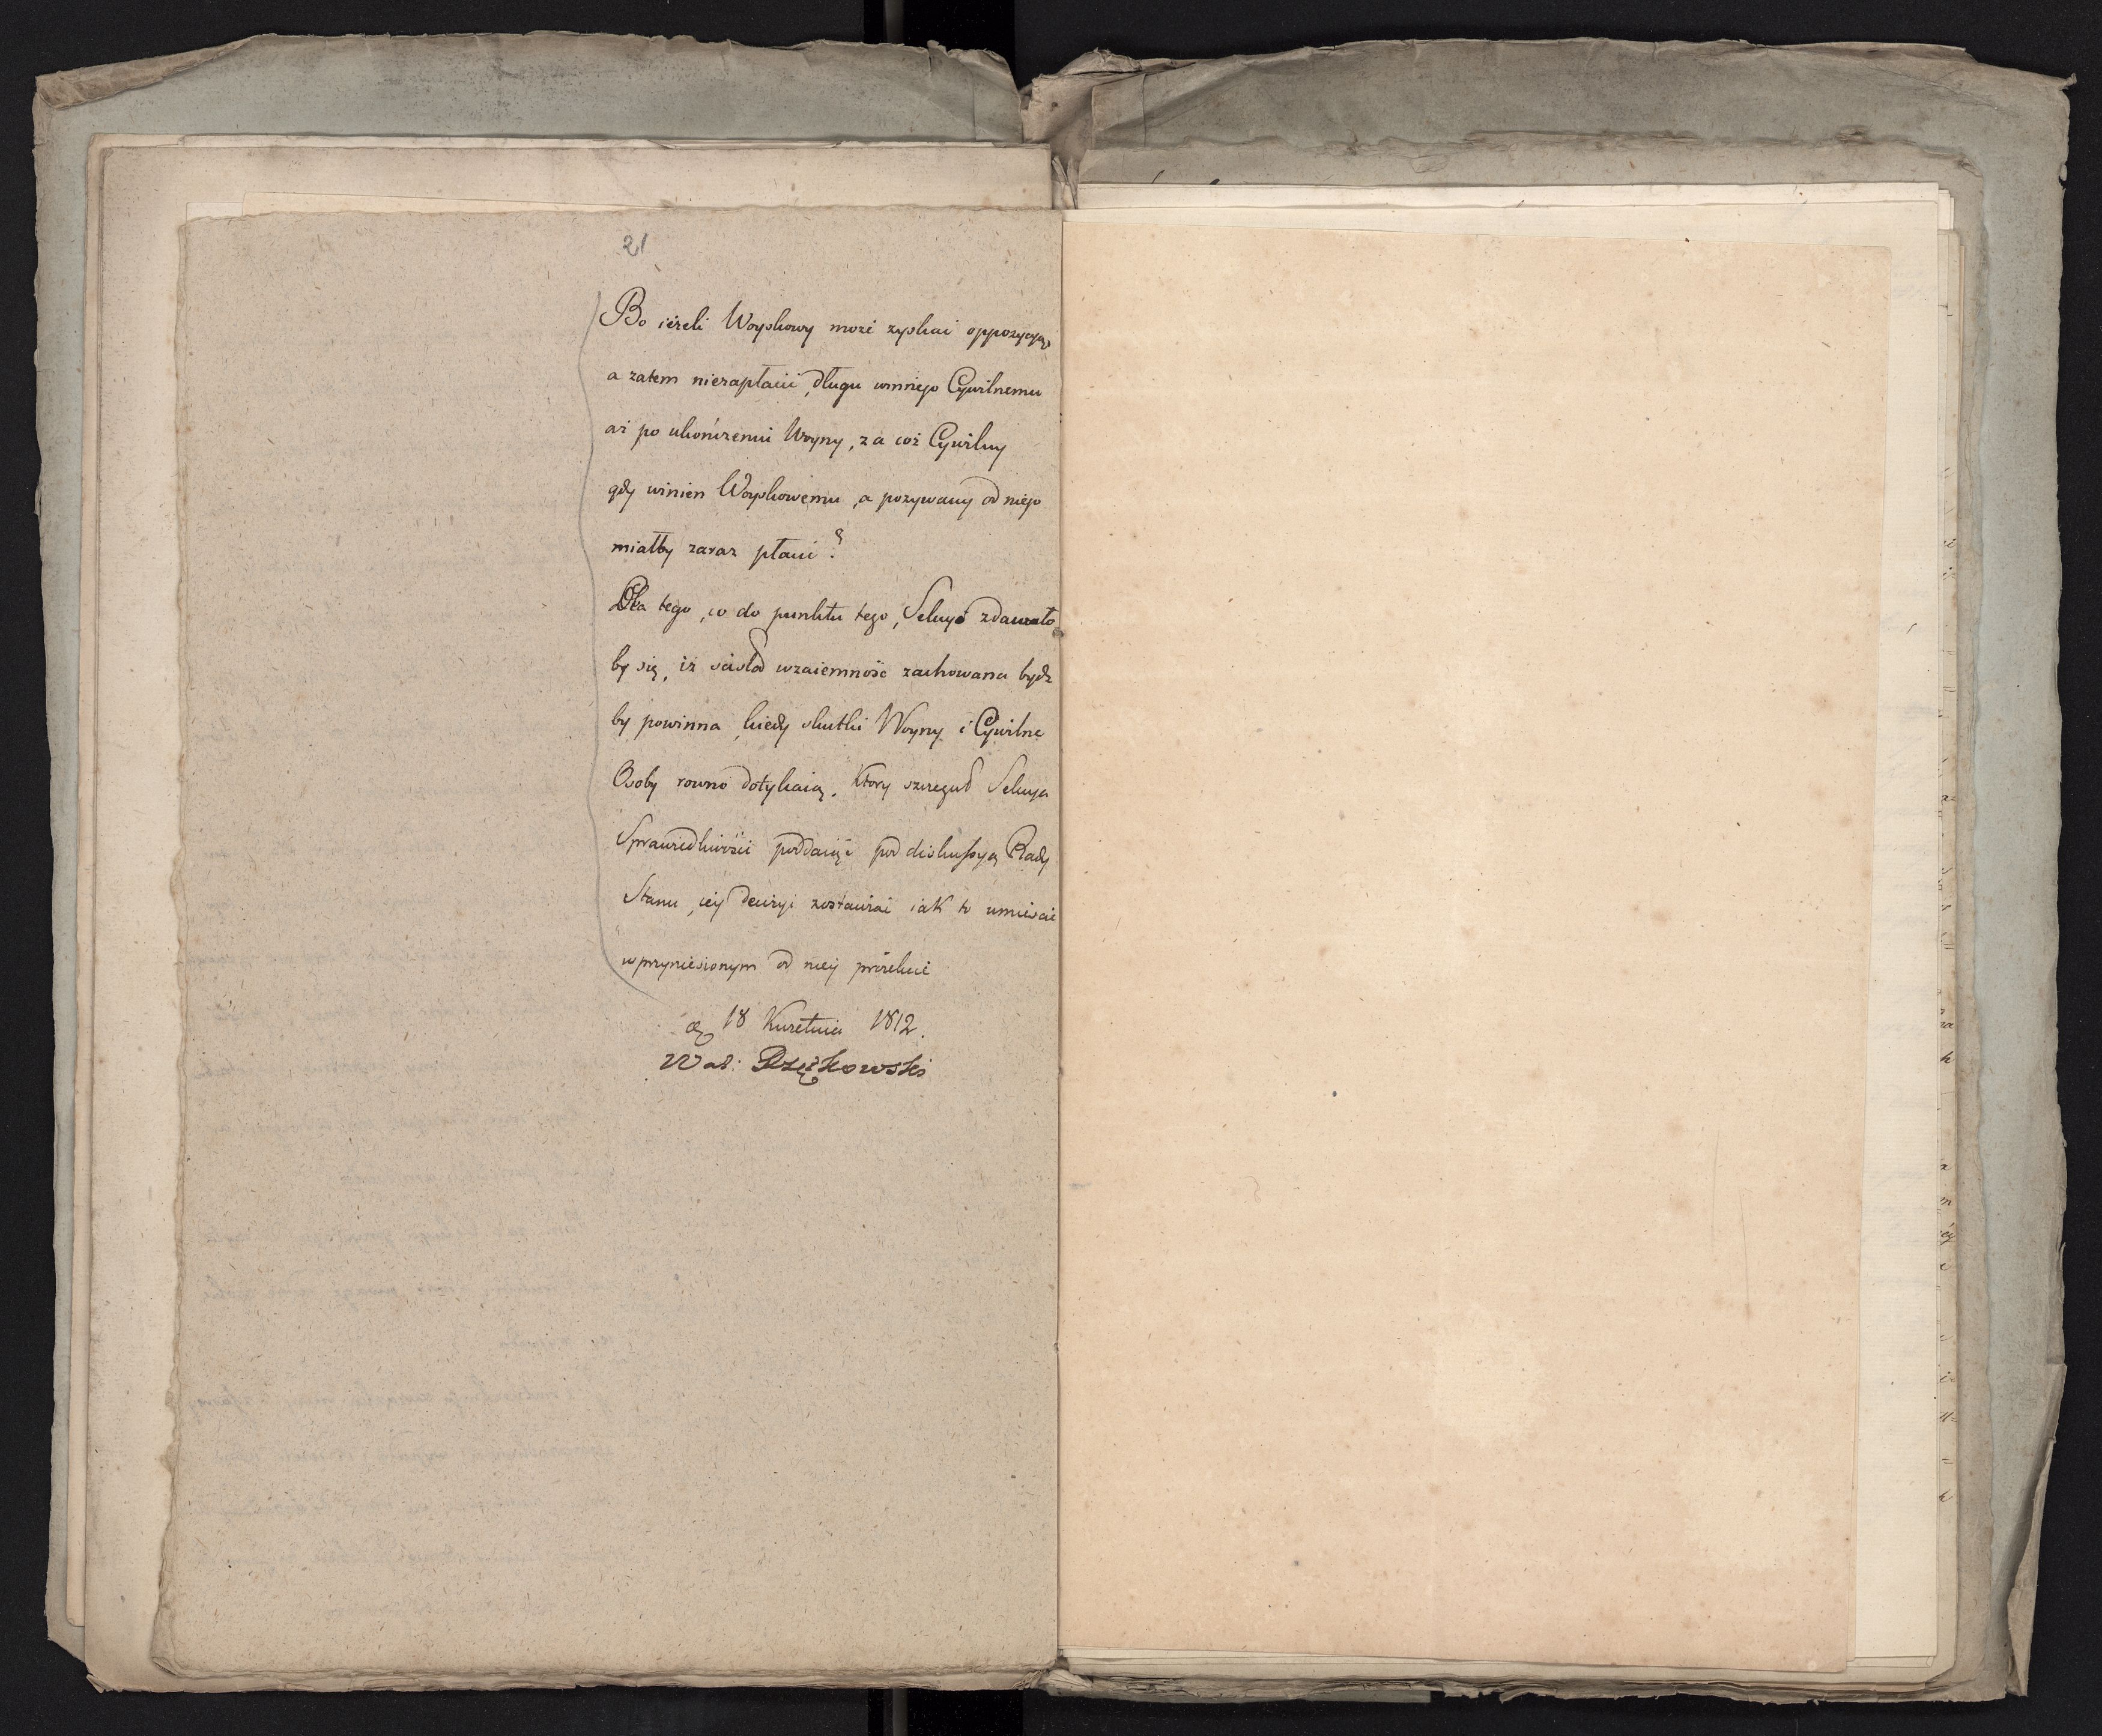 21
Bo ieżeli Woyskowy może zyskać oppozycyą,
a zatem niezapłacić, długu winnego Cywilnemu
aż po ukończeniu Woyny, za coż Cywilny
gdy winien Woyskowemu, a pozywany od niego
miałby zaraz płacić?
Dla tego, co do punktu tego, Sekcyi zdawało
by się, iż ścisła wzaiemność zachowana bydź
by powinna, kiedy skutki Woyny i Cywilne
Osoby rowno dotykaią. Ktory szczeguł Sekcya
Sprawiedliwości poddaiąc pod diskussyą Rady
Stanu, iey decyzyi zostawia iak to umieścić
w przyniesionym od niey proiekcie
18 Kwietnia 1812.
Wal: